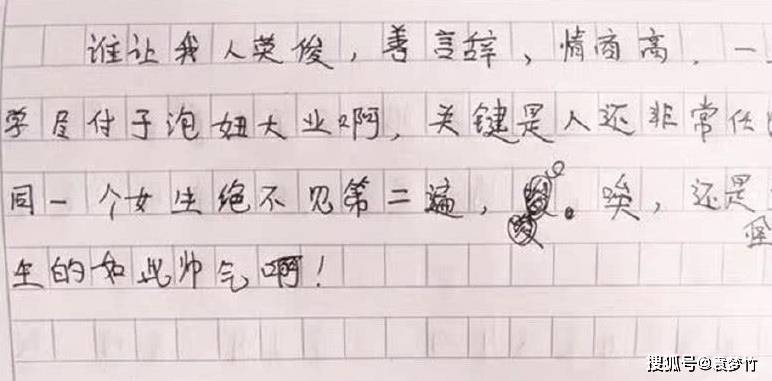 谁让我人英俊，善言辞，情商高，一
学屋付于泡妞大业啊，关键是人还非常任
同一个女生绝不见第二遍，。唉，还是
生的如此帅气啊！
搜狐号@袁梦竹